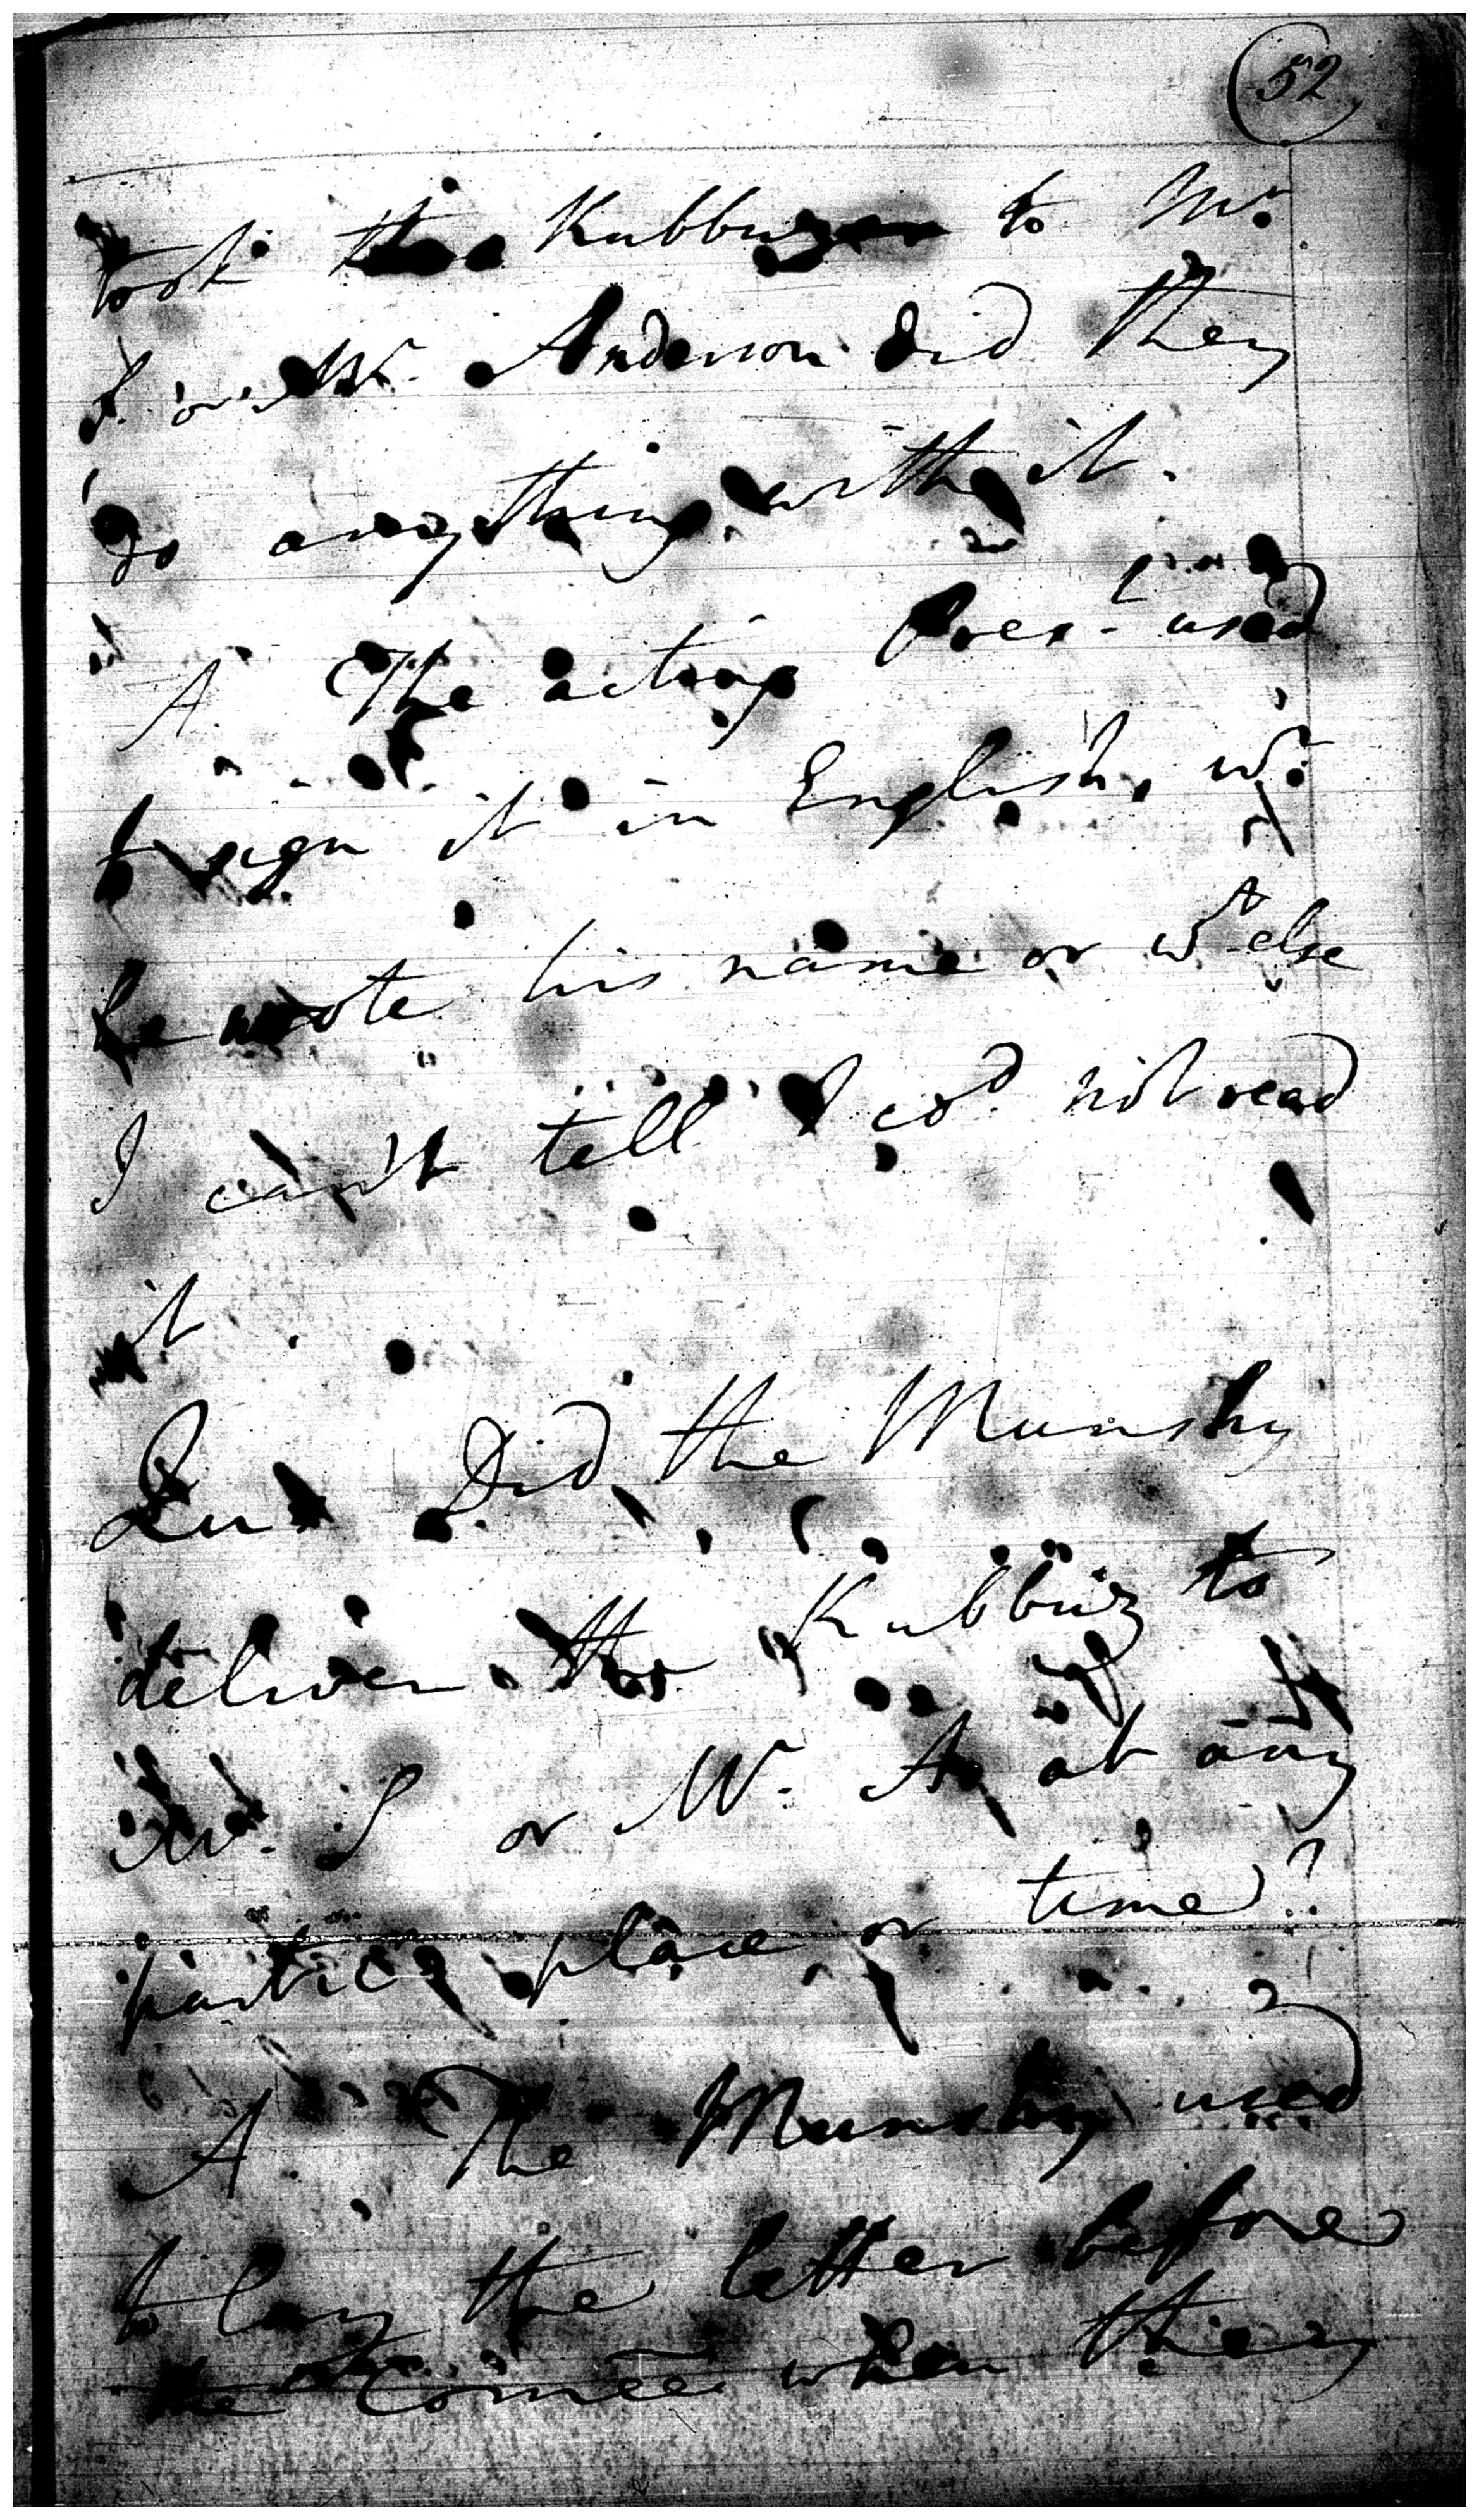 52
took the Kubbuz to Mr.
S. or Mr. Anderson did they
do anything with it.
A. The acting Pres.t used
to sign it in English, wr.
he wrote his name or wt else
I can't tell I cod. not read
it.
Qu Did the Munshy
deliver the Kubbuz to
Mr. S or Mr. A. at any
partic place or time?
A. The Munshy used
to lay the letter before
the Comee when they